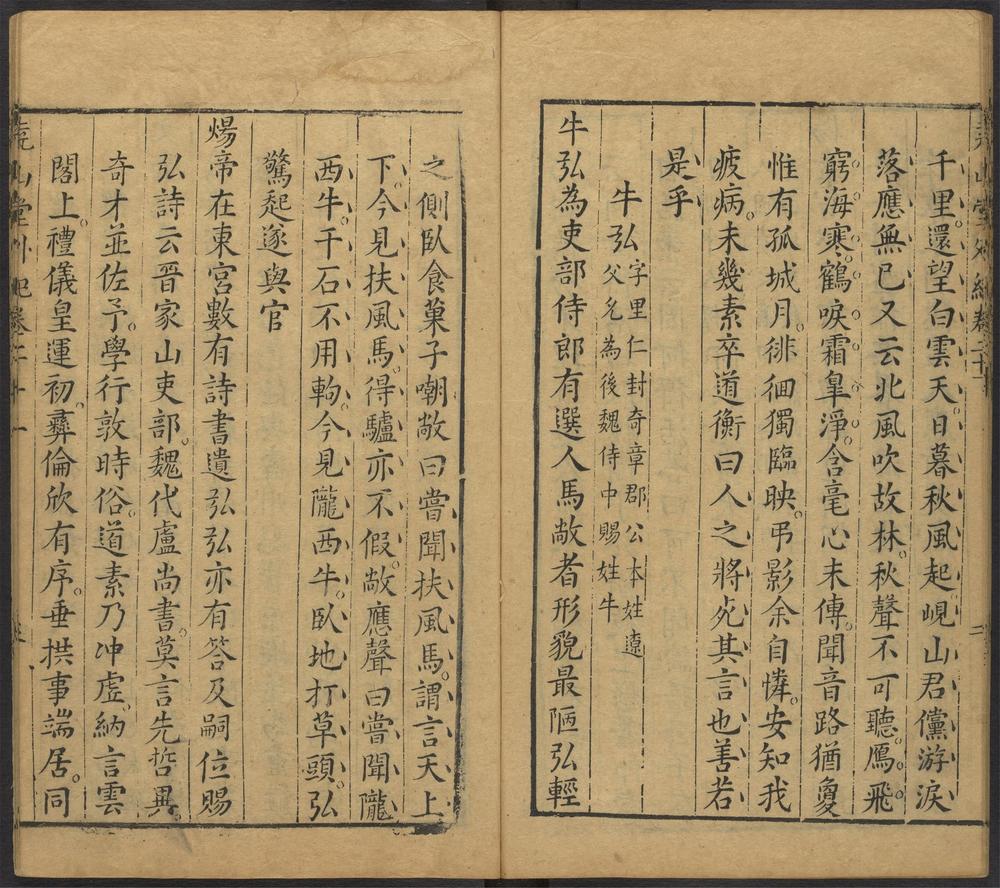 千里還望白雲天日暮秋風起峴山君儻游淚
落應無已又云北風吹故林秋聲不可聽鴈飛
窮海寒鶴唳霜皐淨含毫心未傳聞音路猶敻
惟有孤城月徘徊獨臨映弔影余自憐安知我
疲病未幾素卒道衡曰人之將死其言也善若
是乎
牛弘
字里仁封奇章郡公本姓遼
父允為後魏侍中賜姓牛
牛弘為吏部侍郎有選人馬敞者形貌最陋弘輕
之側臥食菓子嘲敞曰嘗聞扶風馬謂言天上
下今見扶風馬得驢亦不假敞應聲曰嘗聞隴
西牛千石不用軥今見隴西牛臥地打草頭弘
驚起遂與官
煬帝在東宮數有詩書遺弘弘亦有答及嗣位賜
弘詩云晉家山吏部魏代盧尚書莫言先哲異
奇才並佐予學行敦時俗道素乃冲虛納言雲
閣上禮儀皇運初彝倫欣有序垂拱事端居同
堯山堂外紀卷二十一